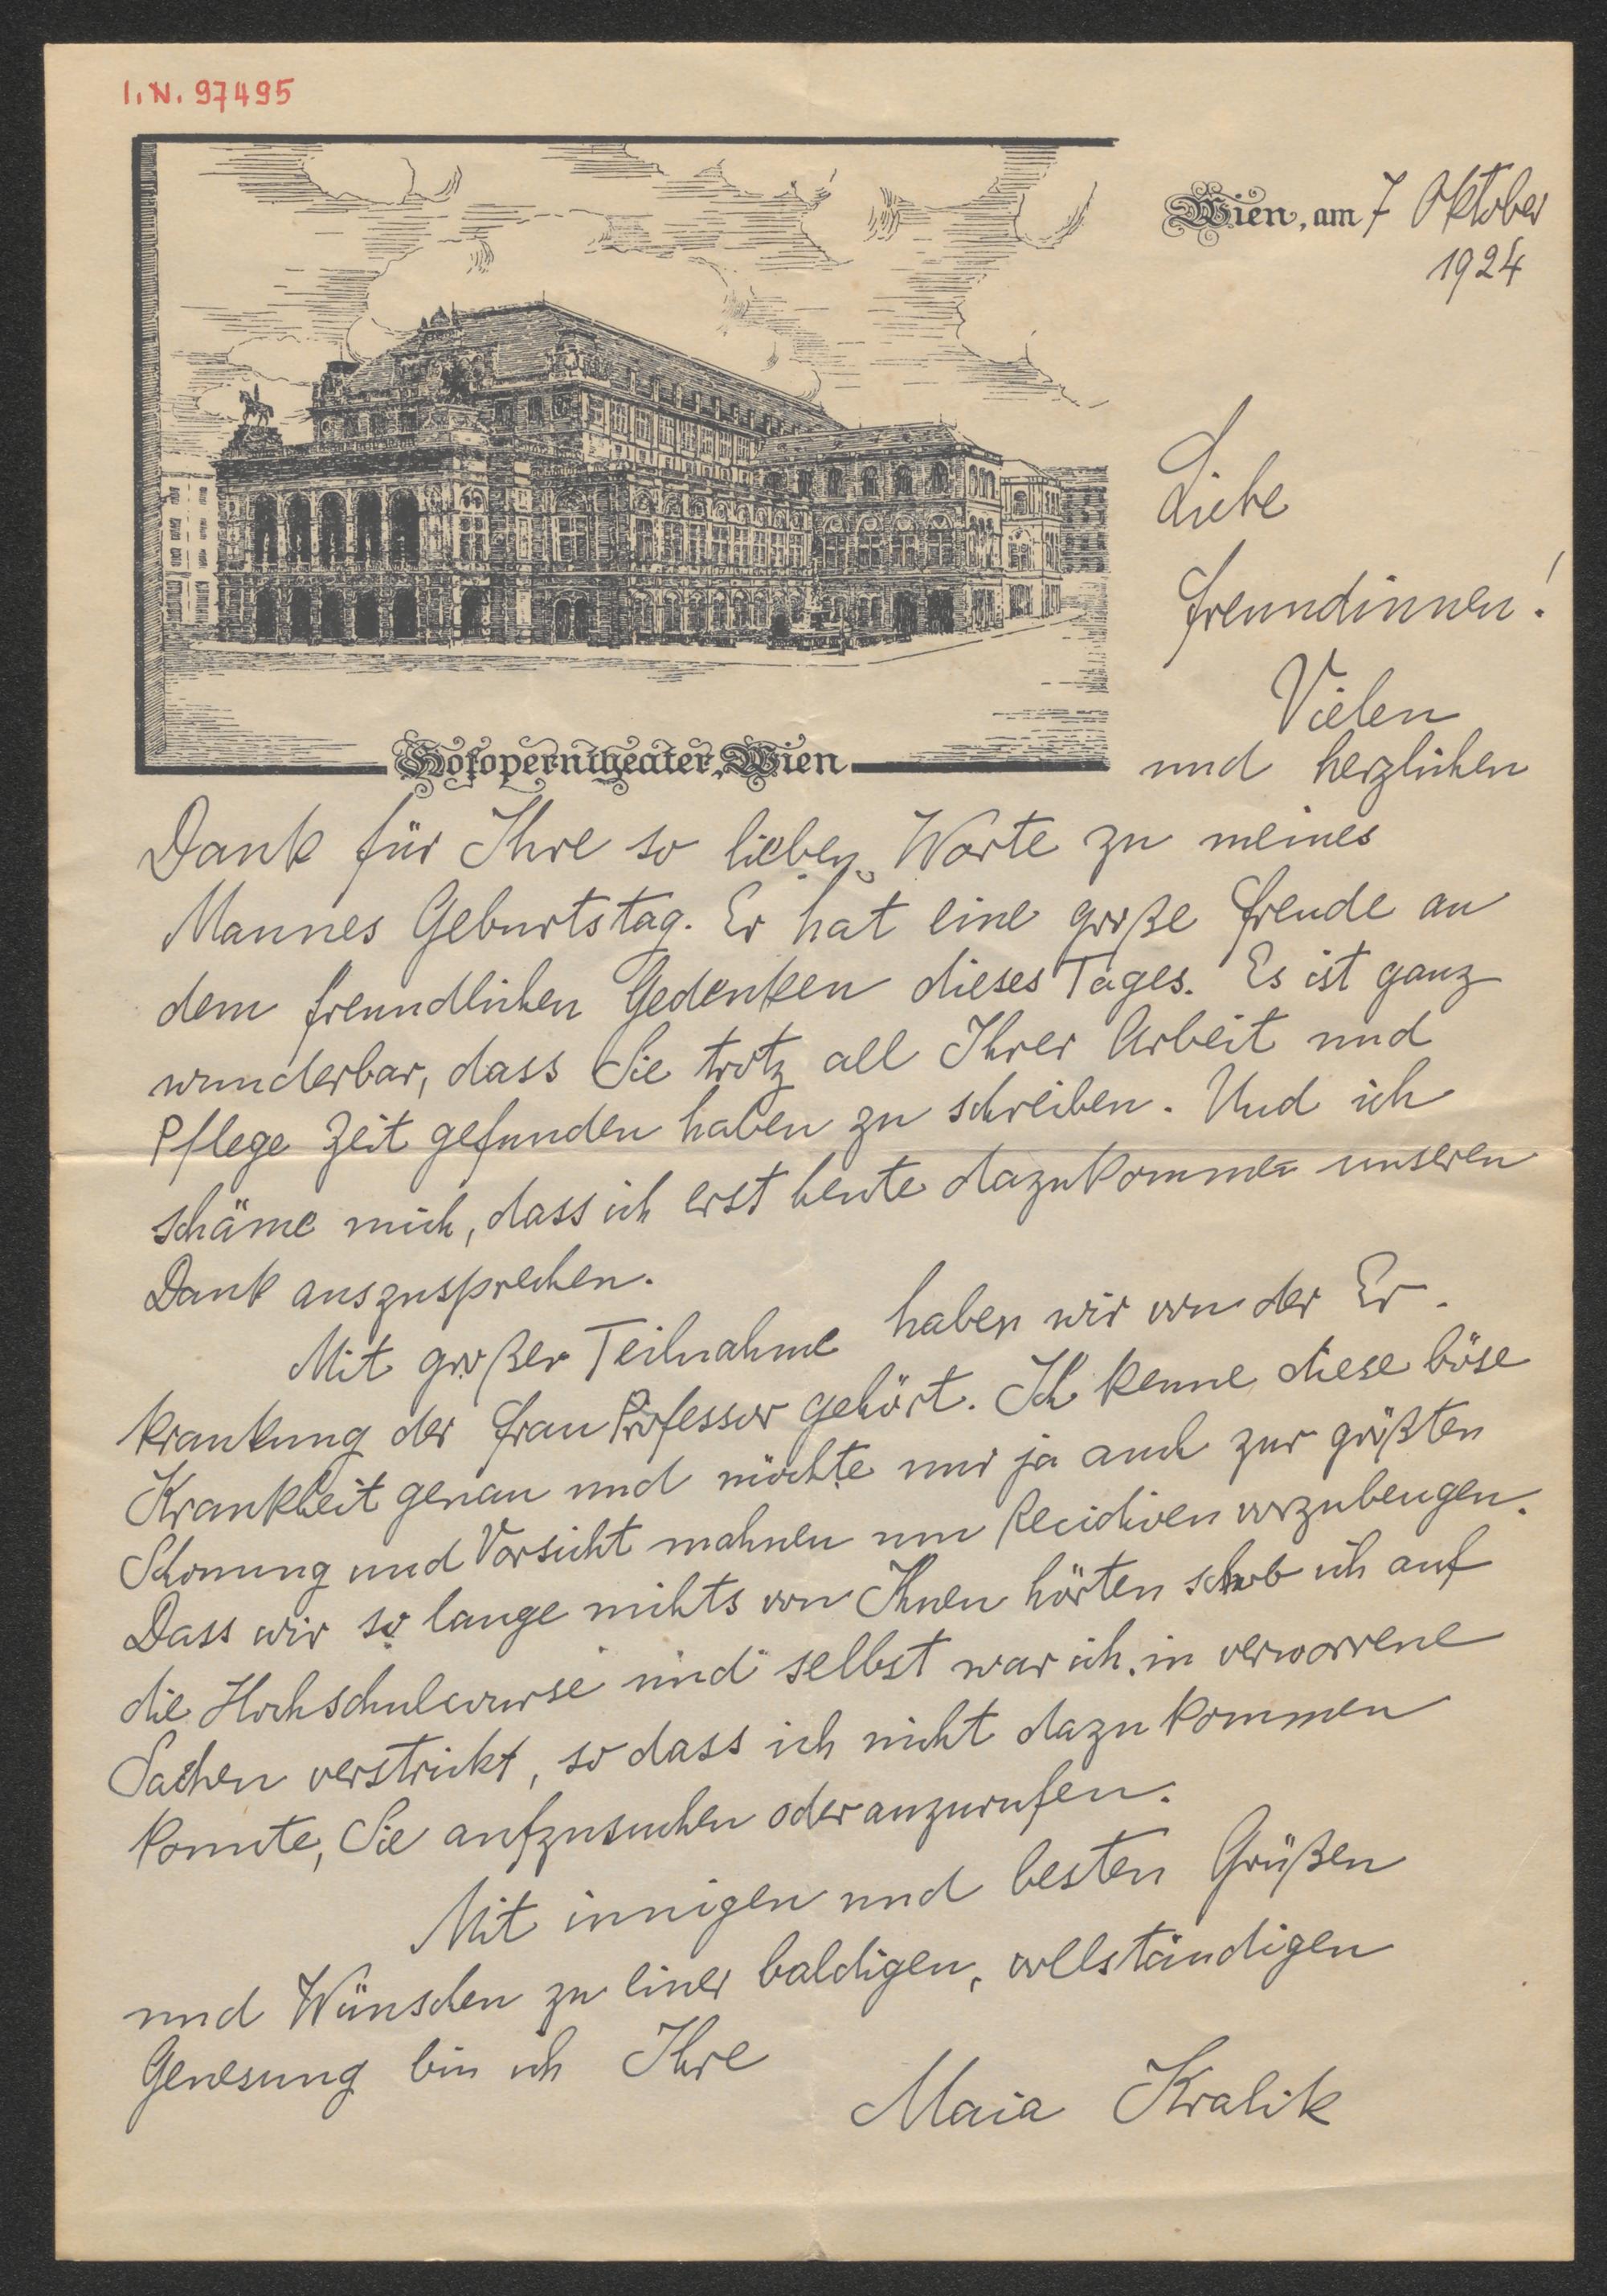 I.N. 97495
Wien, am 7 Oktober
1924
Liebe
Freundinnen!
Vielen
und herzlichen
Hofoperntheater, Wien
Dank für Ihre so lieben Worte zu meines
Mannes Geburtstag. Er hat eine große Freude an
dem freundlichen Gedenken dieses Tages. Es ist ganz
wunderbar, dass Sie trotz all Ihrer Arbeit und
Pflege Zeit gefunden haben zu schreiben. Und ich
schäme mich, dass ich erst heute dazukomme unseren
Dank auszusprechen.
Mit großer Teilnahme haben wir von der Er-
krankung der Frau Professor gehört. Ich kenne diese böse
Krankheit genau und möchte nur ja auch zur größten
Schonung und Vorsicht mahnen um Recidiven vorzubeugen.
Dass wir so lange nichts von Ihnen hörten schob ich auf
die Hochschulcurse und selbst war ich in verworrene
Sachen verstrickt, so dass ich nicht dazu kommen
konnte, Sie aufzusuchen oder anzurufen.
Mit innigen und besten Grüßen
und Wünschen zu einer baldigen, vollständigen
Genesung bin ich Ihre
Maia Kralik